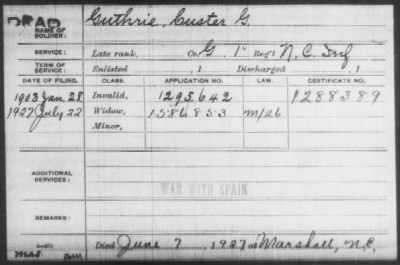 DEAD
NAME OF SOLDIER: Guthrie, Custer G.
SERVICE: Late rank, Co. G, 1 Reg't N.C. Inf
TERM OF SERVICE: Enlisted , 1 Discharged , 1
DATE OF FILING. CLASS. APPLICATION NO. LAW. CERTIFICATE NO.
1903 Jan. 28 Invalid, 1295642 1288389
1927 July 22 Widow, 1586853 m/26
Minor,
ADDITIONAL SERVICES:
WAR WITH SPAIN
REMARKS:
Died June 7, 1927 at Marshall, N.C.